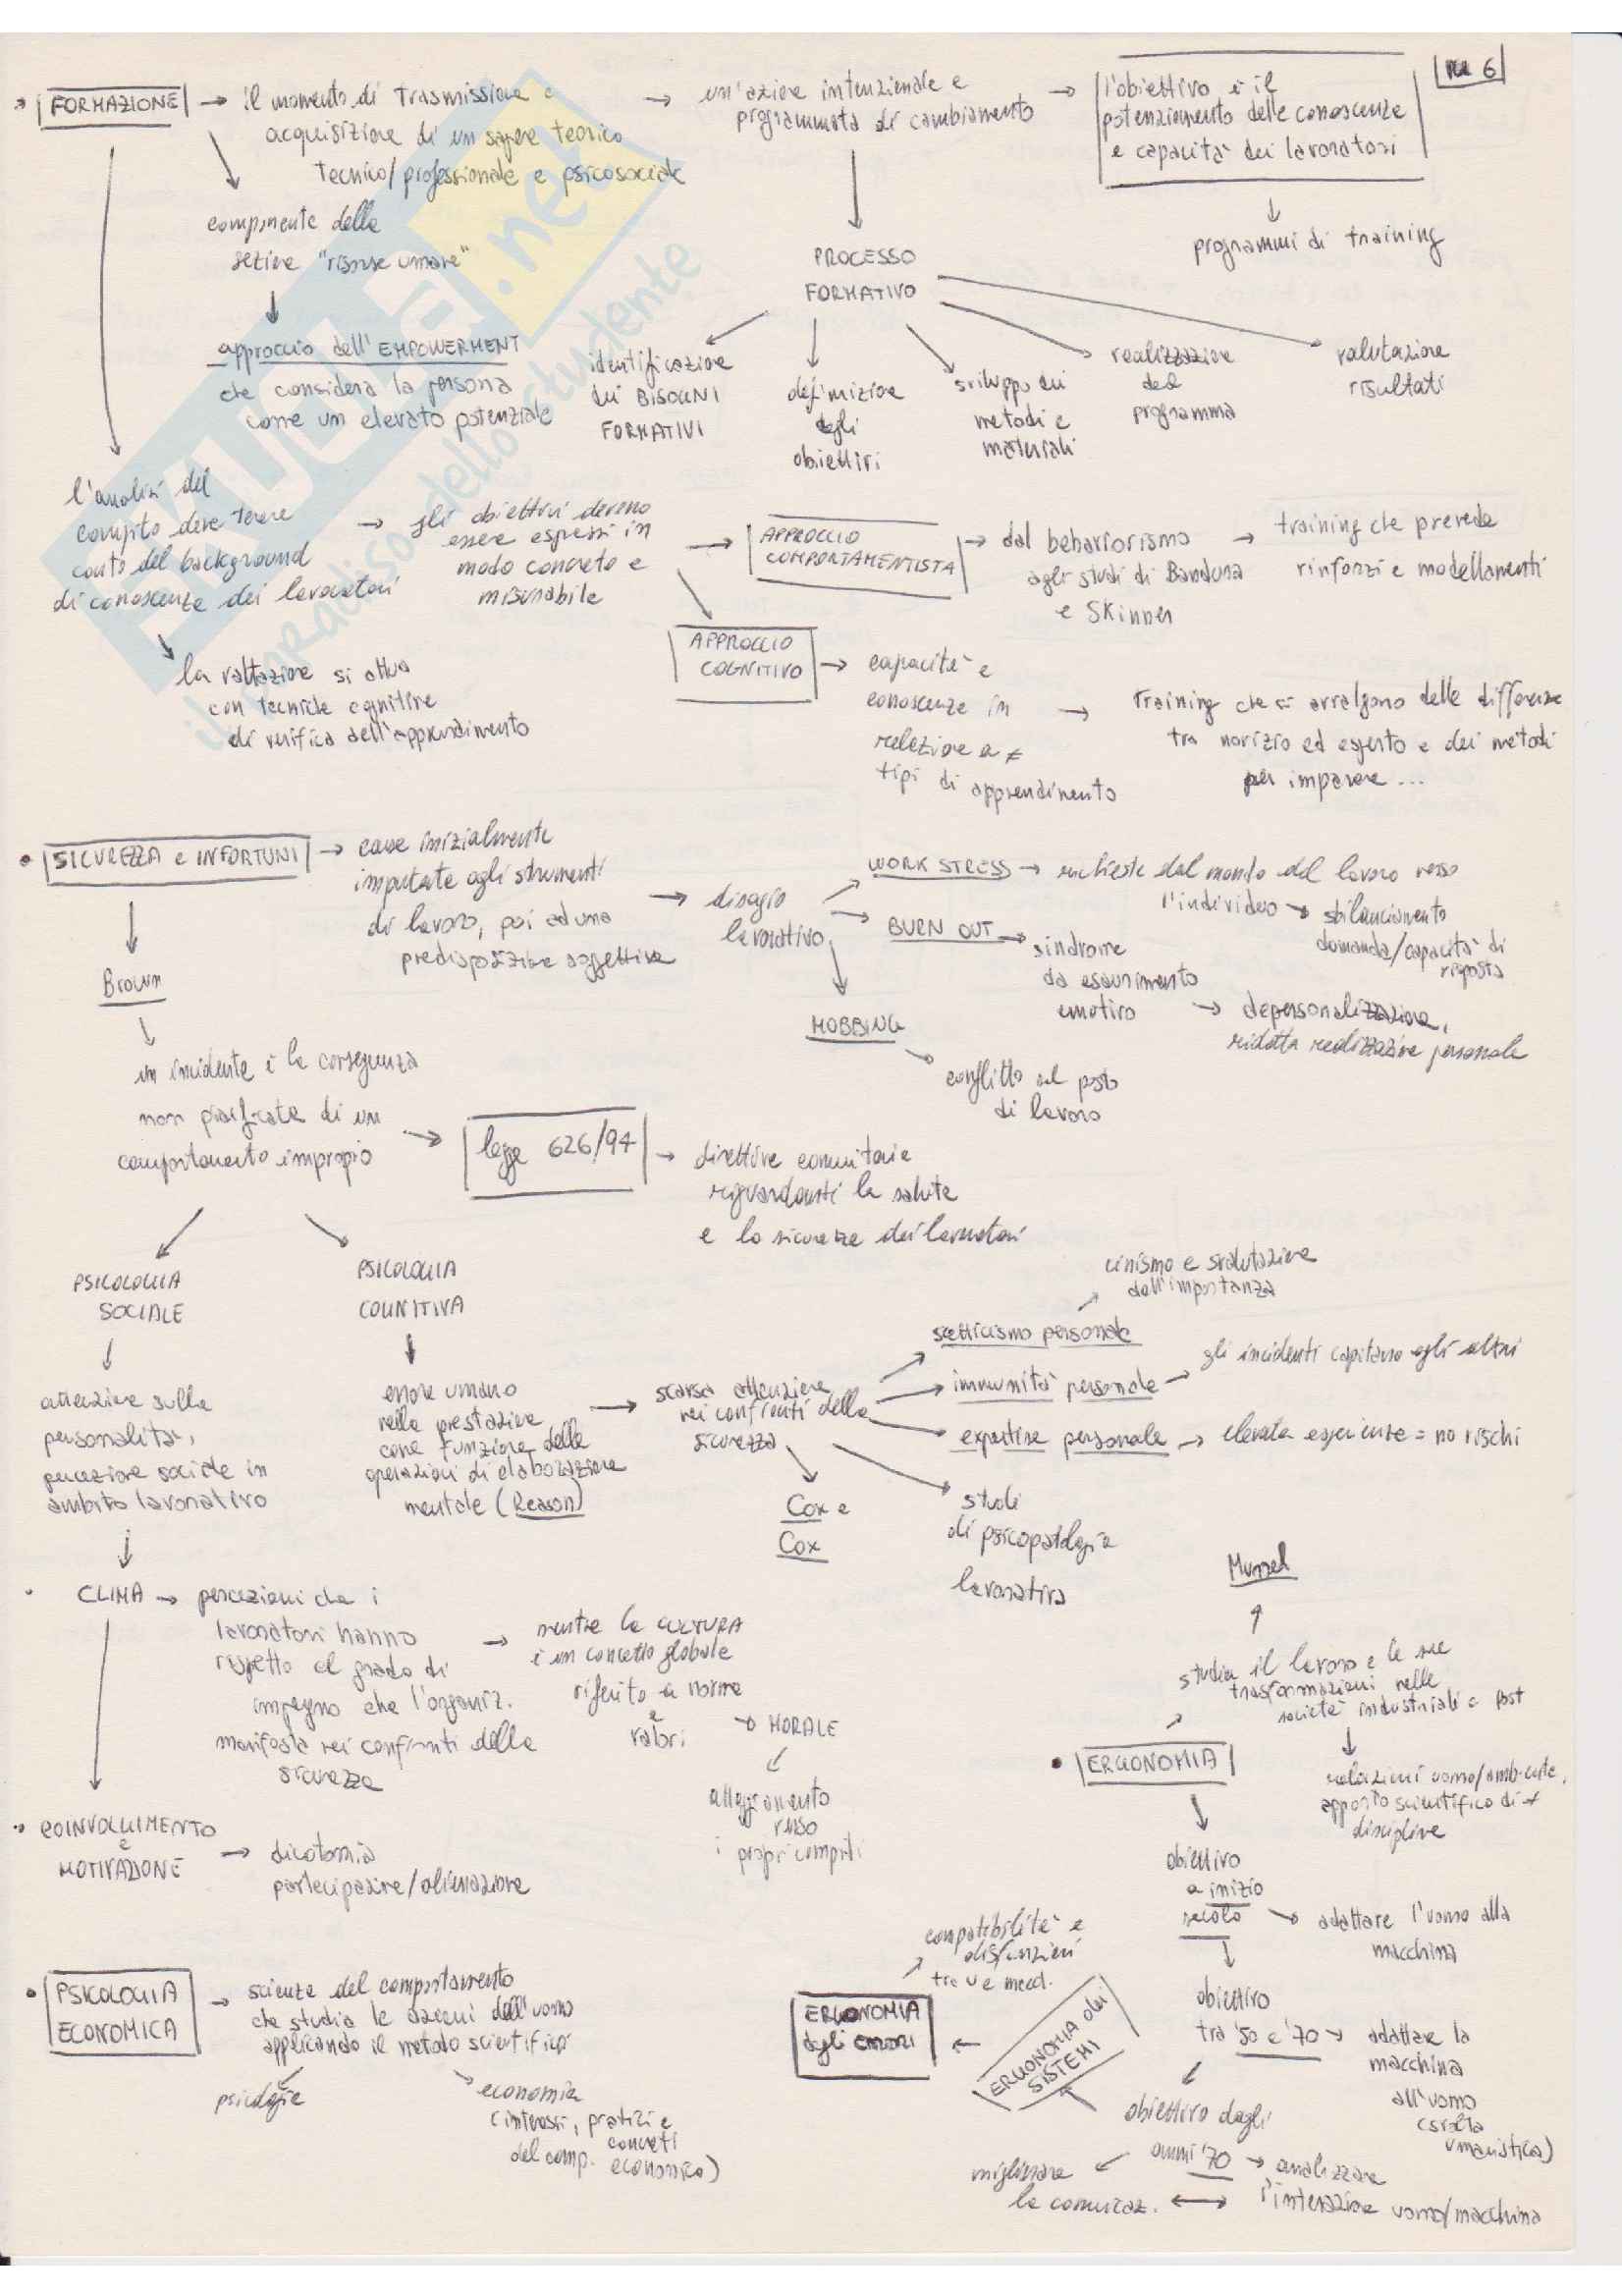 n 6
FORMAZIONE → il momento di trasmissione e
acquisizione di un sapere teorico
tecnico/professionale e psicosociale
→ un'azione intenzionale e
programmata di cambiamento
→ l'obiettivo è il
potenziamento delle conoscenze
e capacità dei lavoratori
programmi di training
componente della
sezione "risorse umane"
approccio dell'EMPOWERMENT
che considera la persona
come un elevato potenziale
PROCESSO
FORMATIVO
identificazione
dei BISOGNI
FORMATIVI
definizione
degli
obiettivi
sviluppo dei
metodi e
materiali
realizzazione
del
programma
valutazione
risultati
l'analisi del
compito deve tenere
conto del background
di conoscenze dei lavoratori
→ gli obiettivi devono
essere espressi in
modo concreto e
misurabile
→ APPROCCIO
COMPORTAMENTISTA
→ dal behaviorismo
agli studi di Bandura
e Skinner
→ training che prevede
rinforzi e modellamenti
la valutazione si attua
con tecniche cognitive
di verifica dell'apprendimento
APPROCCIO
COGNITIVO
→ capacità e
conoscenze in
relazione a ≠
tipi di apprendimento
→ Training che si avvalgono delle differenze
tra novizio ed esperto e dei metodi
per imparare ...
• SICUREZZA e INFORTUNI → cause inizialmente
imputate agli strumenti
di lavoro, poi ad una
predisposizione soggettiva
→ disagio
lavorativo
WORK STRESS → richieste dal mondo del lavoro verso
l'individuo → sbilanciamento
domanda/capacità di
risposta
BURN OUT → sindrome
da esaurimento
emotivo
→ depersonalizzazione,
ridotta realizzazione personale
MOBBING
conflitto sul posto
di lavoro
Brown
un incidente è la conseguenza
non pianificata di un
comportamento improprio
→ legge 626/94 → direttive comunitarie
riguardanti la salute
e la sicurezza dei lavoratori
PSICOLOGIA
SOCIALE
PSICOLOGIA
COGNITIVA
attenzione sulla
personalità,
percezione sociale in
ambito lavorativo
errore umano
nella prestazione
come funzione delle
operazioni di elaborazione
mentale (Reason)
→ scarsa attenzione
nei confronti della
sicurezza
scetticismo personale
cinismo e svalutazione
dell'importanza
immunità personale → gli incidenti capitano agli altri
expertise personale → elevata esperienza = no rischi
Cox e
Cox
studi
di psicopatologia
lavorativa
• CLIMA → percezioni che i
lavoratori hanno
rispetto al grado di
impegno che l'organiz.
manifesta nei confronti della
sicurezza
→ mentre la CULTURA
è un concetto globale
riferito a norme
e
valori
→ MORALE
atteggiamento
verso
i propri compiti
• COINVOLGIMENTO
e
MOTIVAZIONE
→ dicotomia
partecipazione/alienazione
• PSICOLOGIA
ECONOMICA
→ scienze del comportamento
che studia le azioni dell'uomo
applicando il metodo scientifico
psicologia
economia
(interessi, pratiche
concreti
del comp. economico)
Murrel
studia il lavoro e le sue
trasformazioni nelle
società industriali e post
• ERGONOMIA
relazioni uomo/ambiente,
apporto scientifico di ≠
discipline
obiettivo
a inizio
secolo
→ adattare l'uomo alla
macchina
obiettivo
tra '50 e '70 → adattare la
macchina
all'uomo
(svolta
umanistica)
obiettivo dagli
anni '70 → analizzare
l'interazione uomo/macchina
migliorare
la comunicaz. ↔
ERGONOMIA dei
SISTEMI
ERGONOMIA
degli errori
compatibilità e
disfunzioni
tra U e macc.
SKUOLa.net
il paradiso dello studente